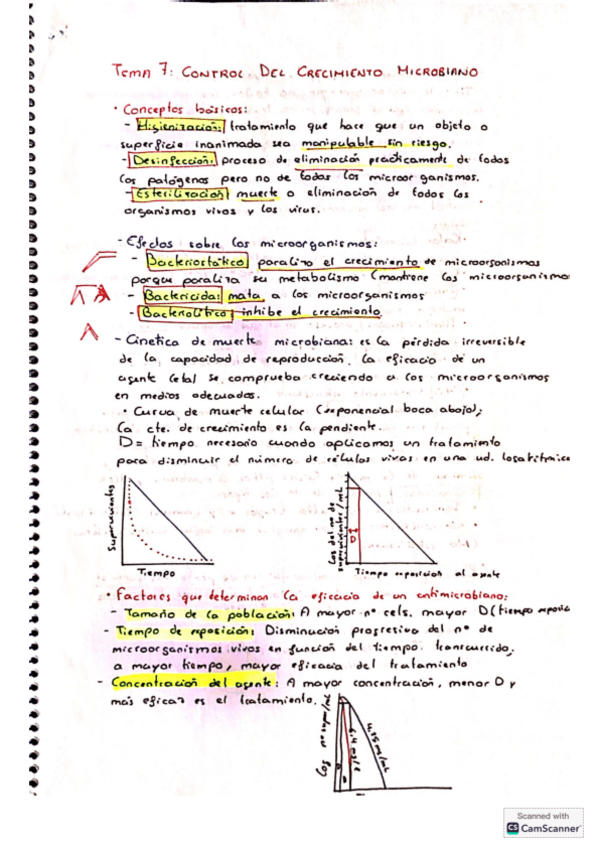 Tema 7: CONTROL DEL CRECIMIENTO MICROBIANO
• Conceptos básicos:
- Higienización: tratamiento que hace que un objeto o
superficie inanimada sea manipulable sin riesgo.
- Desinfección: proceso de eliminación prácticamente de todos
los patógenos pero no de todas los microorganismos.
- Esterilización: muerte o eliminación de todos los
organismos vivos y los virus.
- Efectos sobre los microorganismos:
- Bacteriostático: paraliza el crecimiento de microorganismos
porque paraliza su metabolismo (mantiene los microorganismo
- Bactericida: mata a los microorganismos
- Bacteriolítico: inhibe el crecimiento
- Cinética de muerte microbiana: es la pérdida irreversible
de la capacidad de reproducción. La eficacia de un
agente letal se comprueba creciendo a los microorganismos
en medios adecuados.
• Curva de muerte celular (exponencial boca abajo);
la cte. de crecimiento es la pendiente.
D = tiempo necesario cuando aplicamos un tratamiento
para disminuir el número de células vivas en una ud. logarítmica
Supervivientes
Tiempo
Log del nº de supervivientes/mL
D
Tiempo exposición al agente
• Factores que determinan la eficacia de un antimicrobiano:
- Tamaño de la población: A mayor nº cels. mayor D (tiempo
- Tiempo de exposición: Disminución progresiva del nº de
microorganismos vivos en función del tiempo transcurrido.
a mayor tiempo, mayor eficacia del tratamiento
- Concentración del agente: A mayor concentración, menor D y
más eficaz es el tratamiento.
Log nº super/mL
Scanned with
CS CamScanner